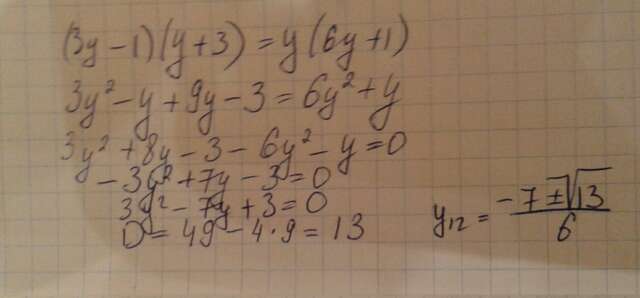 (3y-1)(y+3)=y(6y+1)
3y²-y+9y-3=6y²+y
3y²+8y-3-6y²-y=0
-3y²+7y-3=0
3y²-7y+3=0
D=49-4·9=13
y₁₂=(-7±√13)/6